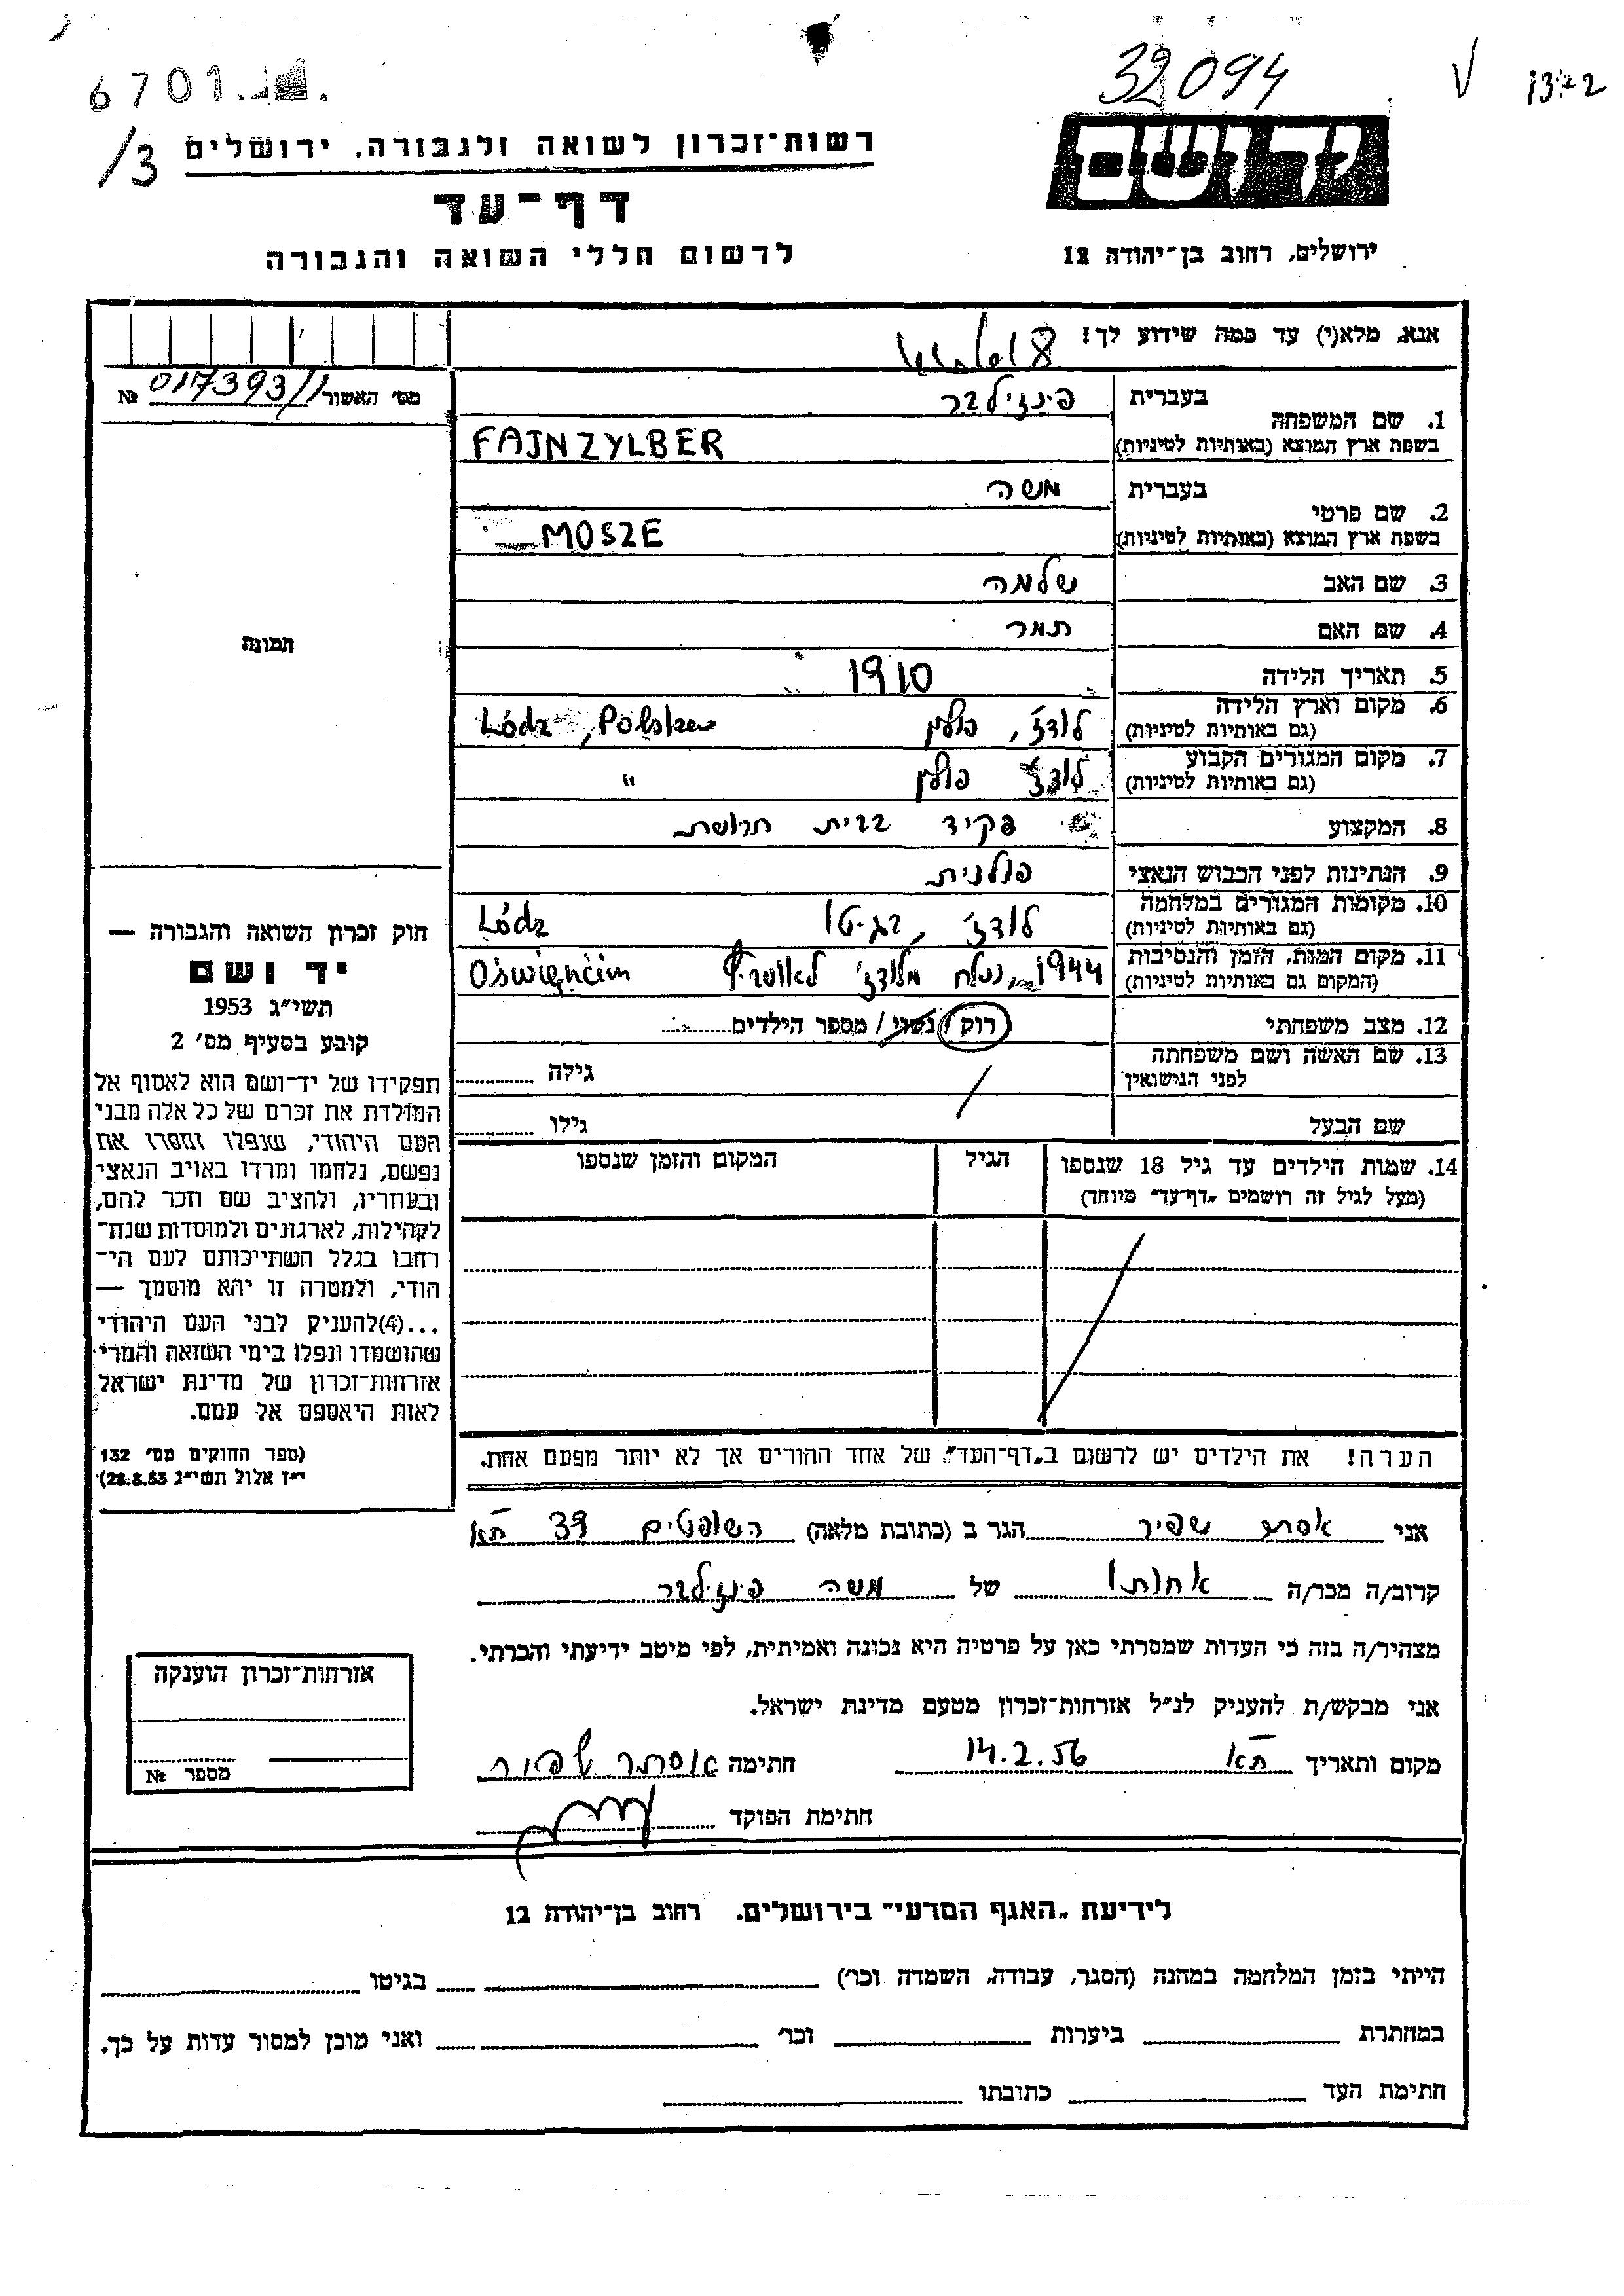 32094
13772
6701
/3
יד ושם
רשות־זכרון לשואה ולגבורה, ירושלים
דף־עד
ירושלים, רחוב בן־יהודה 12
לרשום חללי השואה והגבורה
אנא, מלא(י) עד כמה שידוע לך!
מס׳ האשור 017393/1 №
1. שם המשפחה
בעברית פינזילבר
בשפת ארץ המוצא (באותיות לטיניות) FAJNZYLBER
2. שם פרטי
בעברית משה
בשפת ארץ המוצא (באותיות לטיניות) MOSZE
3. שם האב שלמה
4. שם האם תמר
5. תאריך הלידה 1910
6. מקום וארץ הלידה לודז׳, פולין Lódz, Polska
(גם באותיות לטיניות)
7. מקום המגורים הקבוע לודז׳ פולין "
(גם באותיות לטיניות)
8. המקצוע פקיד בבית חרושת
9. הנתינות לפני הכבוש הנאצי פולנית
10. מקומות המגורים במלחמה לודז׳, בגיטו Lódz
(גם באותיות לטיניות)
11. מקום המות, הזמן והנסיבות 1944, נשלח מלודז׳ Oświęncim
(המקום גם באותיות לטיניות)
12. מצב משפחתי רוק / נשוי / מספר הילדים
13. שם האשה ושם משפחתה
לפני הנישואין גילה
שם הבעל גילו
14. שמות הילדים עד גיל 18 שנספו הגיל המקום והזמן שנספו
(מעל לגיל זה רושמים „דף־עד״ מיוחד)
הערה! את הילדים יש לרשום ב„דף־העד״ של אחד ההורים אך לא יותר מפעם אחת.
תמונה
חוק זכרון השואה והגבורה —
יד ושם
תשי״ג 1953
קובע בסעיף מס׳ 2
תפקידו של יד־ושם הוא לאסוף אל
המולדת את זכרם של כל אלה מבני
העם היהודי, שנפלו ומסרו את
נפשם, נלחמו ומרדו באויב הנאצי
ובעוזריו, ולהציב שם וזכר להם,
לקהילות, לארגונים ולמוסדות שנח־
רבו בגלל השתייכותם לעם הי־
הודי, ולמטרה זו יהא מוסמך —
...(4)להעניק לבני העם היהודי
שהושמדו ונפלו בימי השואה והמרי
אזרחות־זכרון של מדינת ישראל
לאות היאספם אל עמם.
(ספר החוקים מס׳ 132
י״ז אלול תשי״ג 28.8.53)
אני אסתר שפיר הגר ב (כתובת מלאה) השופטים 39 ת״א
קרוב/ה מכר/ה אחותו של משה פינזילבר
מצהיר/ה בזה כי העדות שמסרתי כאן על פרטיה היא נכונה ואמיתית, לפי מיטב ידיעתי והכרתי.
אני מבקש/ת להעניק לנ״ל אזרחות־זכרון מטעם מדינת ישראל.
מקום ותאריך ת״א 14.2.56 חתימה אסתר שפיר
חתימת הפוקד
אזרחות־זכרון הוענקה
מספר №
לידיעת „האגף המדעי״ בירושלים. רחוב בן־יהודה 12
הייתי בזמן המלחמה במחנה (הסגר, עבודה, השמדה וכו׳) בגיטו
במחתרת ביערות וכו׳ ואני מוכן למסור עדות על כך.
חתימת העד כתובתו